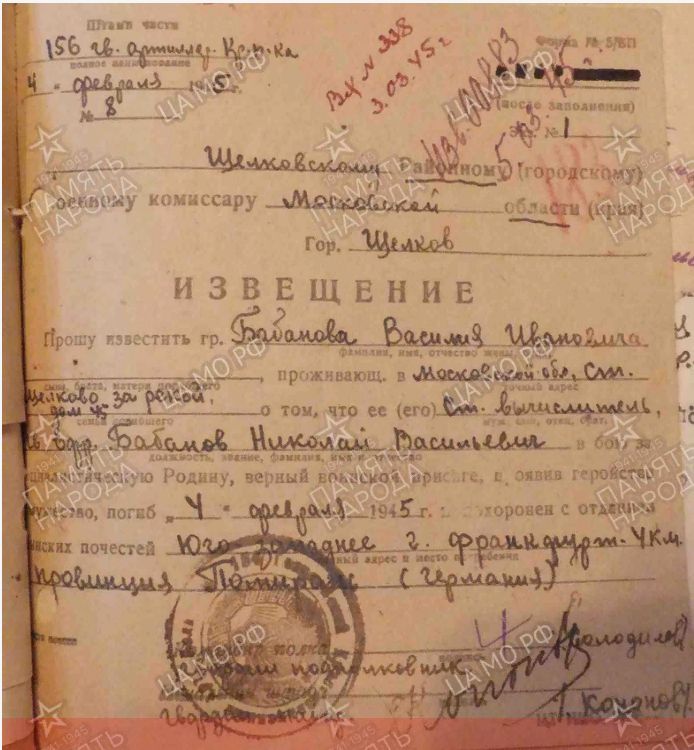 Штамп части
156 гв. артиллер. Кр. п-ка
полное наименование
4 " февраля 1945 г.
№ 8
Вх N 338
3.03.45 г
Форма № 5/ВП
(после заполнения)
Экз. № 1
Щелковскому Районному (городскому)
военному комиссару Московской области (края)
Гор. Щелков
ИЗВЕЩЕНИЕ
Прошу известить гр. Бабанова Василия Ивановича
фамилия, имя, отчество жены,
сына, брата, матери погибшего
, проживающ. в Московской обл, Ст.
точный адрес
щелково за рекой,
дом 45 о том, что ее (его) Ст. вычислитель,
семьи погибшего
муж, сын, отец, брат,
ефр. Бабанов Николай Васильевич в бою за
должность, звание, фамилия, имя и отчество
циалистическую Родину, верный воинской присяге, п оявив геройство
мужество, погиб „ 4 " февраля 1945 г. похоронен с отданием
инских почестей Юго западнее г. франкфурт-4 км.
адрес и место погребения
провинция (Германия)
Командир полка
гвардии подполковник
ЦАМО.РФ
ПАМЯТЬ
НАРОДА
1941-1945